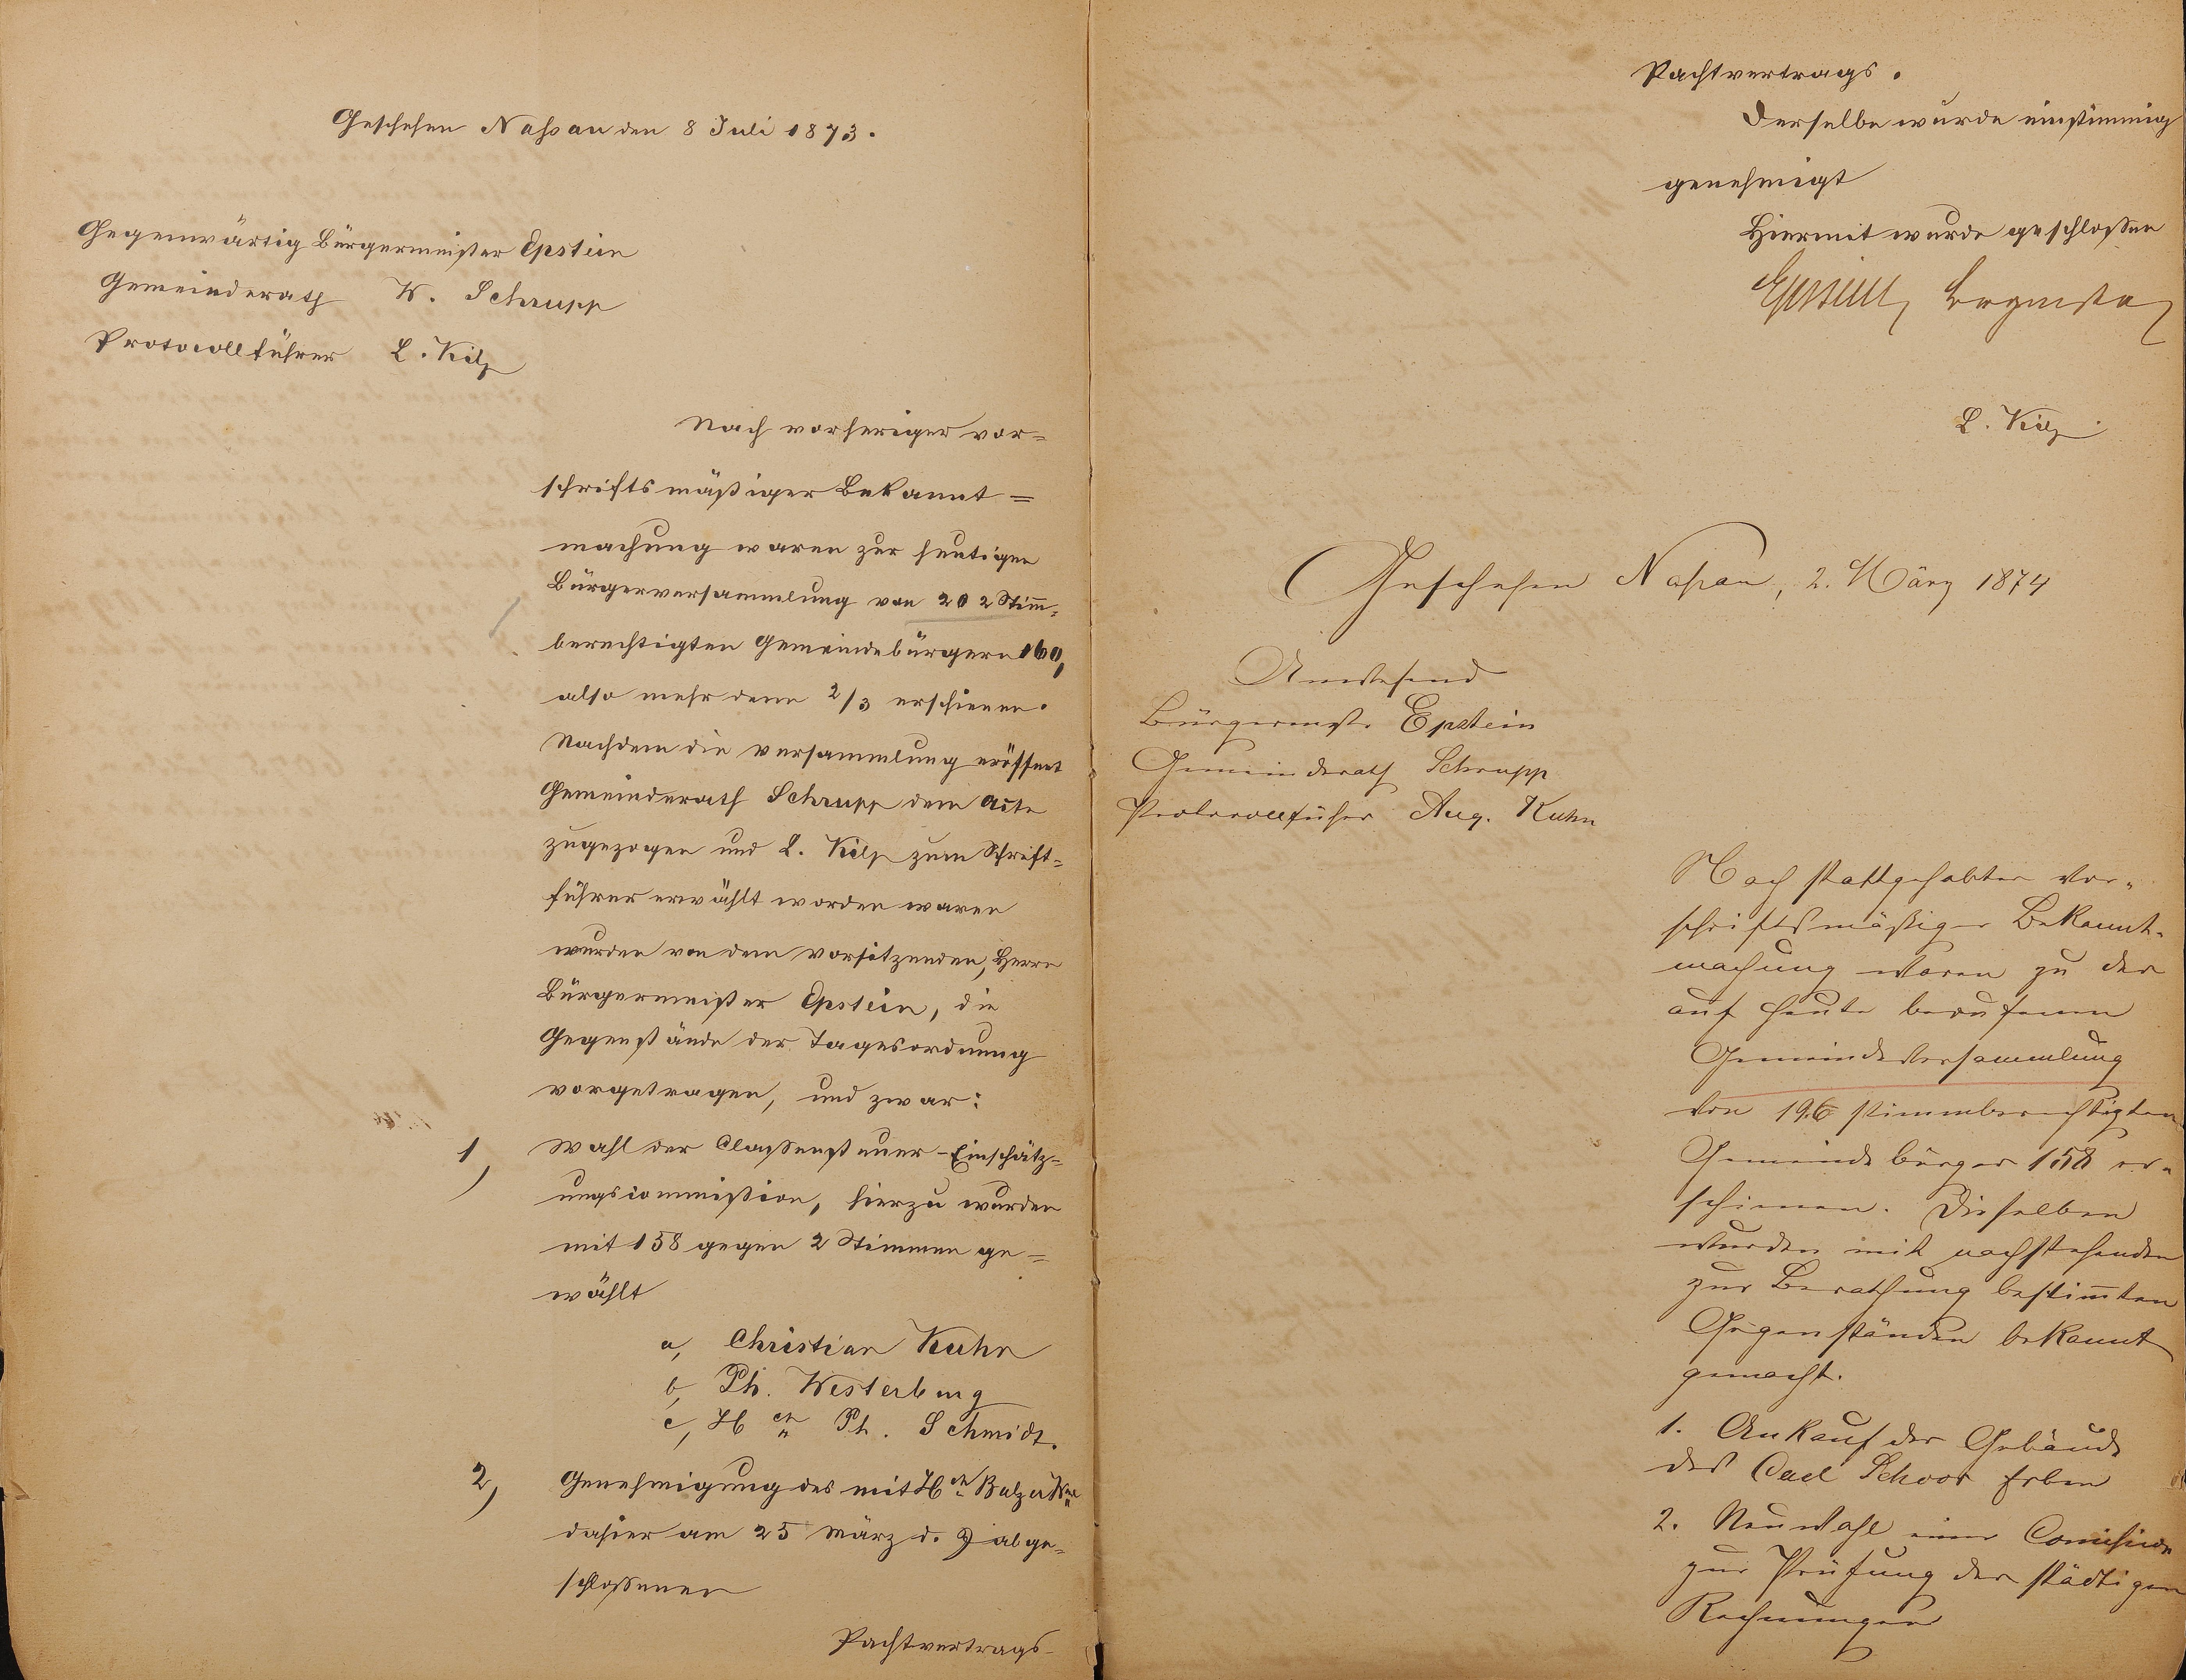 Geschehen Naßau den 8 Juli 1873.
Gegenwärtig Bürgermeister Epstein
Gemeinderath W. Schrupp
Protocollführer L. Kilp
Nach vorheriger vor=
schriftsmäßiger Bekannt=
machung waren zur heutigen
Bürgerversammlung von 202 Stim̅=
berechtigten Gemeindebürgern 160,
also mehr denn 2/3 erschienen.
Nachdem die Versammlung eröffnet
Gemeinderath Schrupp dem Acte
zugezogen und L. Kilp zum Schrift=
führer erwählt worden waren
wurden von dem Vorsitzenden, Herrn
Bürgermeister Epstein, die
Gegenstände der Tagesordnung
vorgetragen, und zwar:
1, Wahl der Classensteuer-Einschätz=
ungscommißion, hierzu wurden
mit 158 gegen 2 Stimmen ge=
wählt
a, Christian Kuhn
b, Ph. Westerburg
c, Hch Ph. Schmidt.
2, Genehmigung des mit Hch
dahier am 25 März d. J abge=
schloßenen
Pachtvertrags
Pachtvertrags.
Derselbe wurde einstimmig
genehmigt
Hiermit wurde geschloßen
Epstein, Bürgermstr
L. Kilp
Geschehen Naßau, 2. März 1874
Anwesend
Bürgermstr. Epstein
Gemeinderath Schrupp
Protocollführer Aug. Kuhn
Nach stattgehabter vor=
schriftsmäßiger Bekannt=
machung waren zu der
auf heute berufenen
Gemeindeversammlung
von 196 stimmberechtigten
Gemeindebürger 158 er=
schienen. Dieselben
wurden mit nachstehenden
zur Berathung bestim̅ten
Gegenständen bekannt
gemacht.
1. Ankauf der Gebäude
des Carl Schoor Erben
2. Neuwahl einer Com̅ißion
zur Prüfung der städtigen
Rechnungen